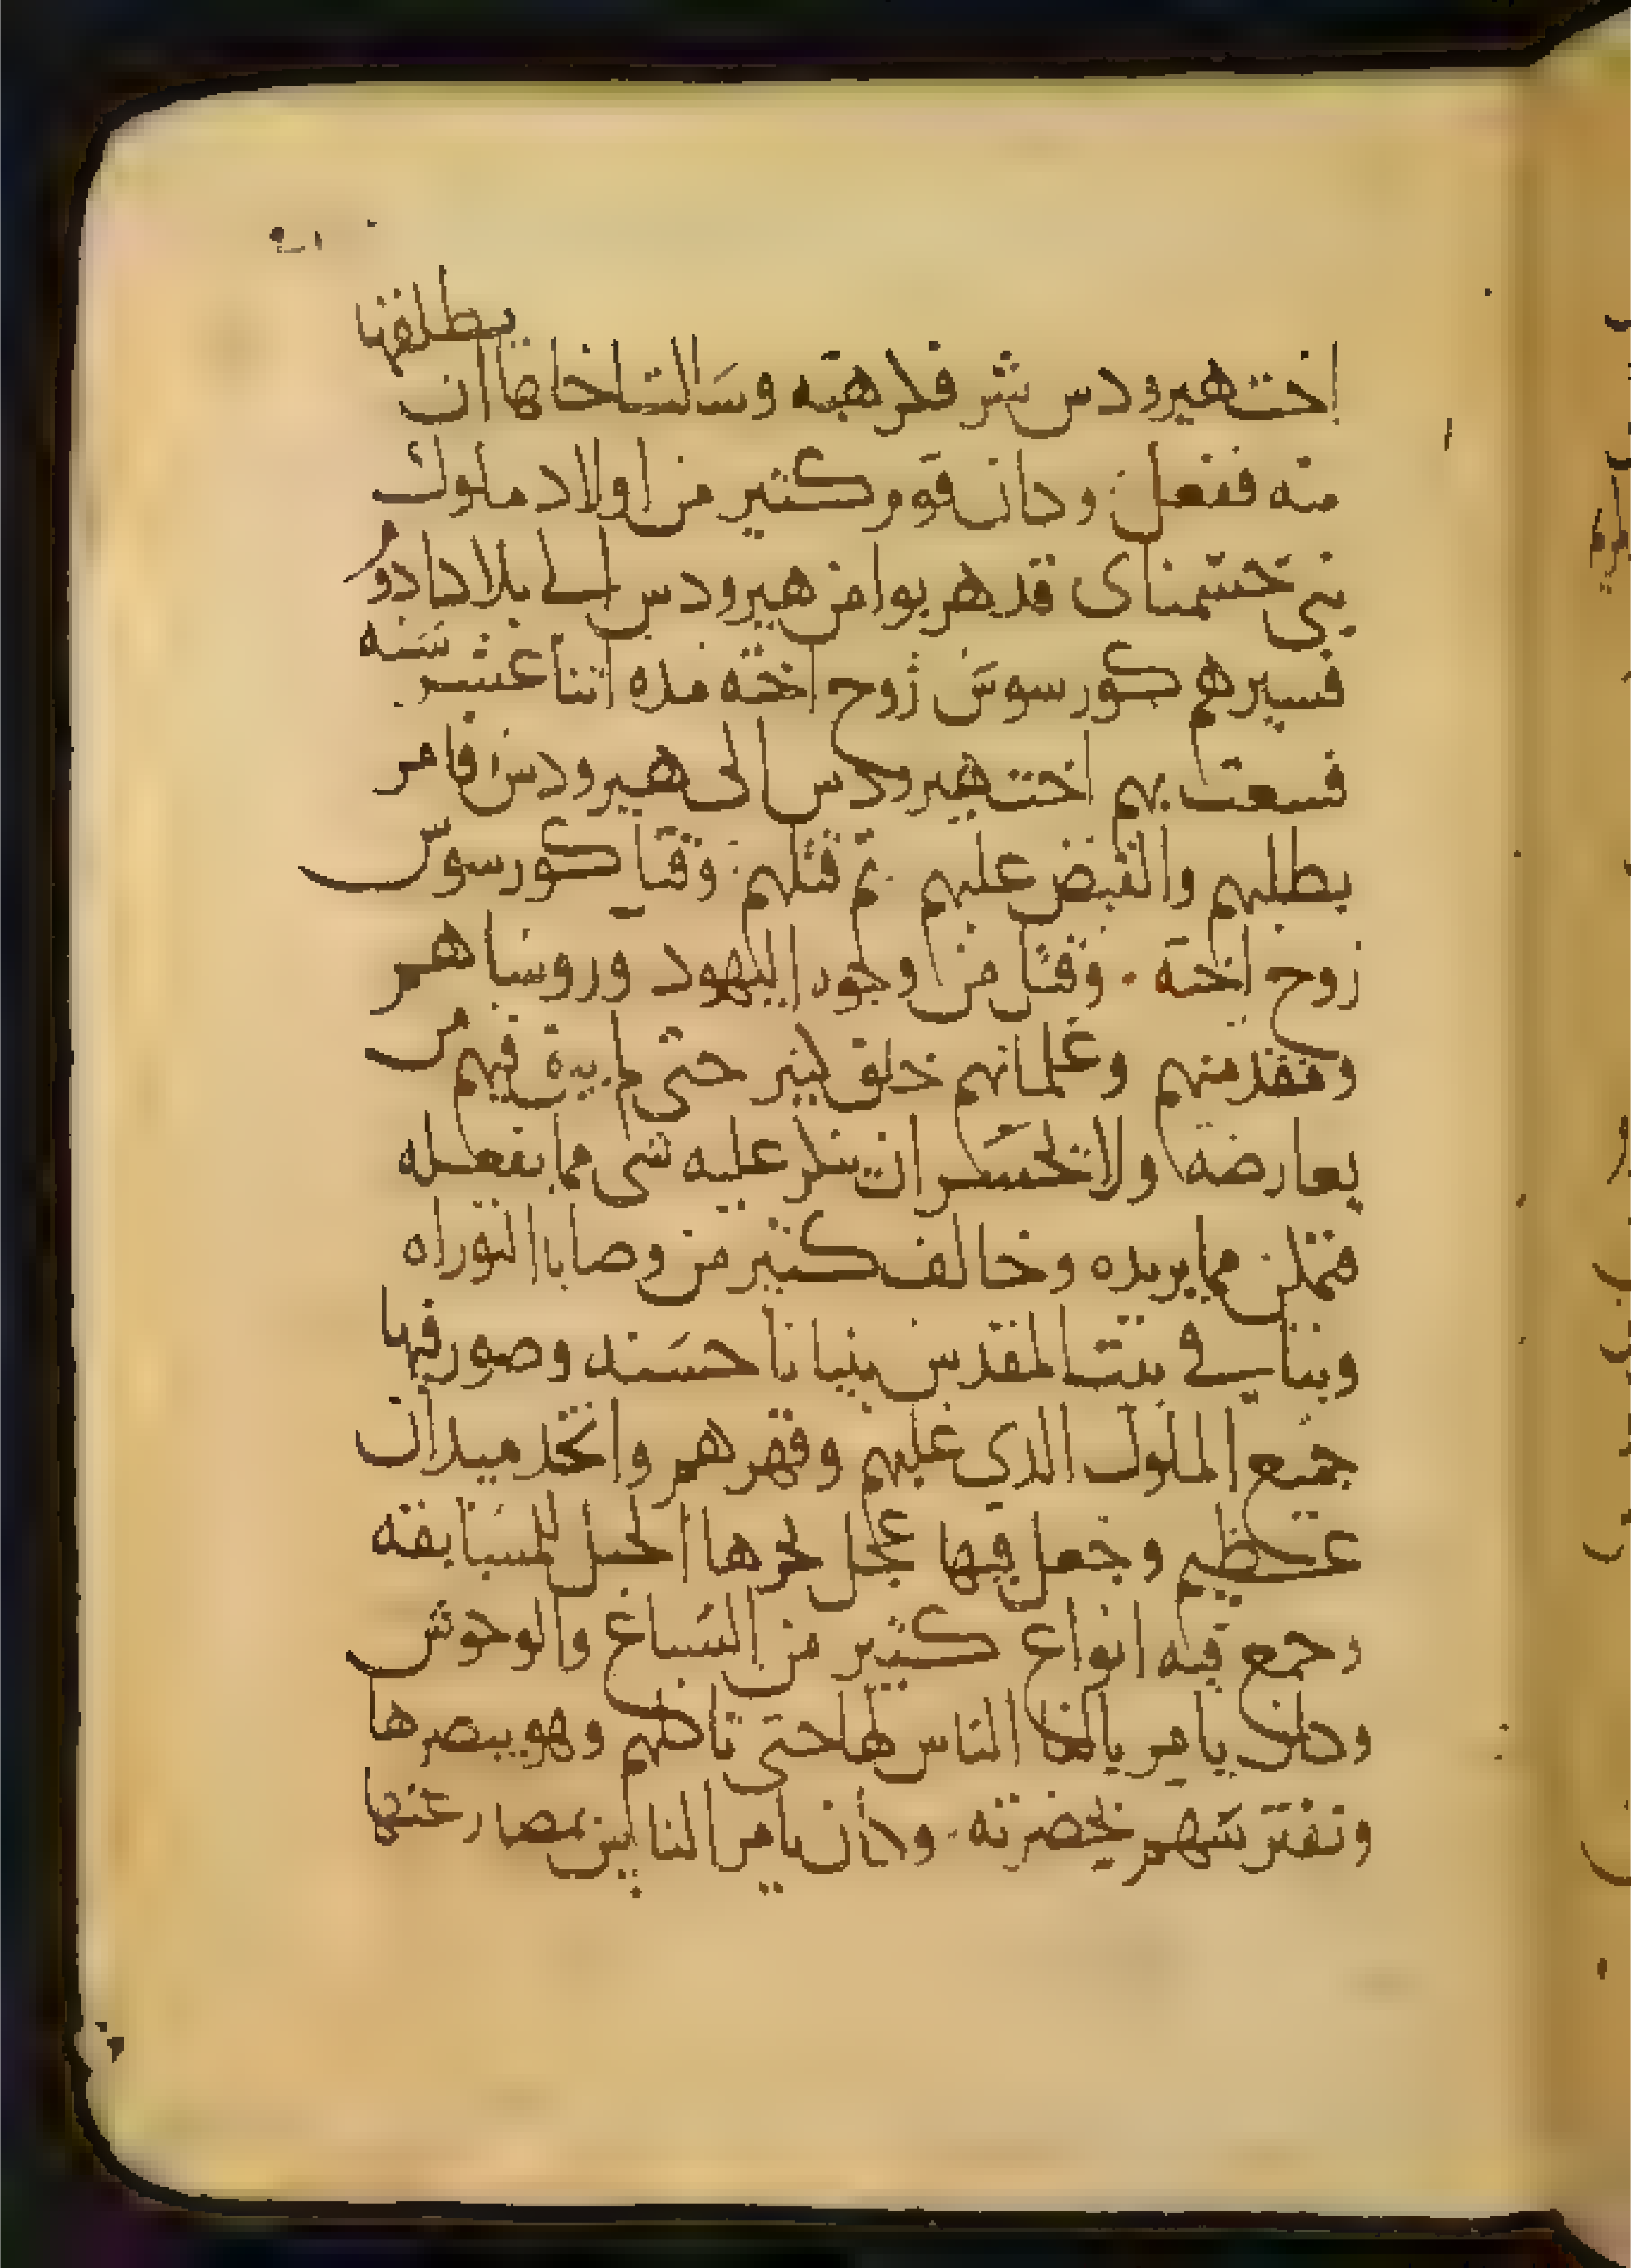 يطلقها
اخت هيرودس شر فكرهته وسالت اخاها ان
منه ففعل وكان قوم كتير من اولاد ملوك
بني حسمناي قد هربوا من هيرودس الى بلاد ادوم
فسيرهم كورسوس زوج اخته مده اتنا عشر سنه
فسعت بهم اخت هيرودس الى هيرودس فامر
بطلبهم والقبض عليهم تم قتلهم وقتل كورسوس
زوج اخته وقتل من وجوه اليهود وروساهم
وتقدمتهم وغلمانهم خلق كتير حتى لم يبق فيهم من
يعارضه ولا يجسر ان ينكر عليه شي مما يفعله
فتمكن مما يريده وخالف كتير من وصايا التوراه
وبنا في بيت المقدس بنيانا حسنه وصور فيها
جميع الملوك الذي غلبهم وقهرهم واتخد ميدان
عظيم وجعل فيها عجل تجرها الخيل للمسابقه
وجمع فيه انواع كتير من السباع والوحوش
وكان يامر بالقا الناس لها حتى تاكلهم وهو يبصرها
وتفترسهم بحضرته وكان يامر الناس بمصارعتها